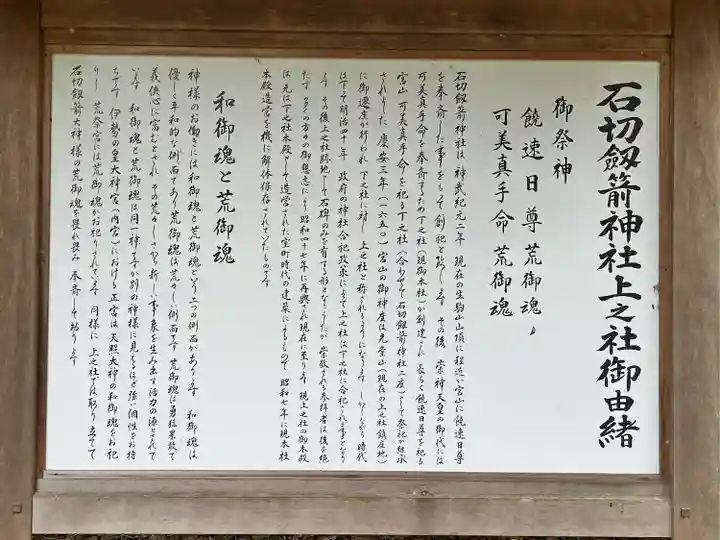 石切劔箭神社上之社御由緒
御祭神
饒速日尊荒御魂
可美真手命荒御魂
石切劔箭神社は神武紀元二年 現在の生駒山山頂に程近い宮山に饒速日尊
を奉斎した事をもって創祀と致します その後 崇神天皇の御代には
可美真手命を奉斎するため下之社(現御本社)が創建され 長らく饒速日尊を祀る
宮山 可美真手命を祀る下之社(合わせて石切劔箭神社二座)として祭祀が継承
されました 慶安三年(一六五〇)宮山の御神座は元堂山(現在の上之社鎮座地)
に御遷座が行われ 下之社に対し 上之社と称されるようになります しかしながら時代
は下って明治四十年 政府の神社合祀政策によって上之社は下之社に合祀される事となり
ます その後上之社跡地としても石碑のみを有する形となりましたが 崇敬される参拝者は後を絶
たず 多くの方々の御懇志により昭和四十七年に再興され現在に至ります 現上之社の御本殿
は元は下之社本殿として造営された室町時代の建築によるもので 昭和七年に現本社
本殿造営を機に解体保存されていたものです
和御魂と荒御魂
神様のお働きには和御魂と荒御魂という二つの側面があります 和御魂は
優しく平和的な側面であり荒御魂は荒々しい側面です 荒御魂は勇猛果敢で
義侠心に富むとされ その荒々しさから新しい事象を生み出す活力の源とされて
います 和御魂と荒御魂は同一神ですが別の神様に見えるほど強い個性をお持
ちです 伊勢の皇大神宮(内宮)における正宮は天照大神の和御魂をお祀
りし 荒祭宮には荒御魂がお祀りされています 同様に 上之社では取り立てて
石切劔箭大神様の荒御魂を畏み畏み 奉斎して居ります